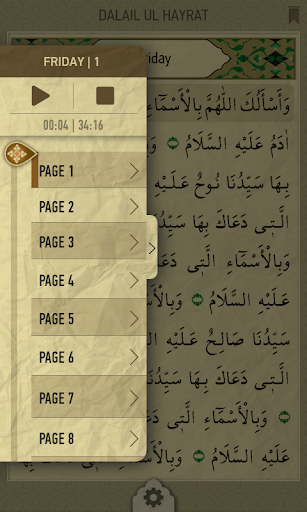 DALAIL UL HAYRAT
FRIDAY | 1
iday
00:04 | 34:16
PAGE 1
PAGE 2
PAGE 3
PAGE 4
PAGE 5
PAGE 6
PAGE 7
PAGE 8
وَأَسْأَلُكَ اللّٰهُمَّ بِالْأَسْمَآءِ
اٰدَمُ عَلَيْهِ السَّلَامُ
بِهَا سَيِّدُنَا نُوحٌ عَلَيْهِ
الَّتِى دَعَاكَ بِهَا سَيِّدُنَا
وَبِالْأَسْمَآءِ الَّتِى
عَلَيْهِ السَّلَامُ وَبِالْأَ
سَيِّدُنَا صَالِحٌ عَلَيْهِ
الَّتِى دَعَاكَ بِهَا سَيِّدُنَا
وَبِالْأَسْمَآءِ الَّتِى
عَلَيْهِ السَّلَامُ وَبِالْأَسْمَآءِ الَّتِى دَعَاكَ بِهَا